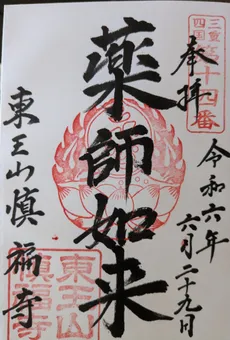 三重
四国第十四番
奉拝
令和六年
六月二十九日
薬師如来
東王山慎福寺
東王山
慎福寺